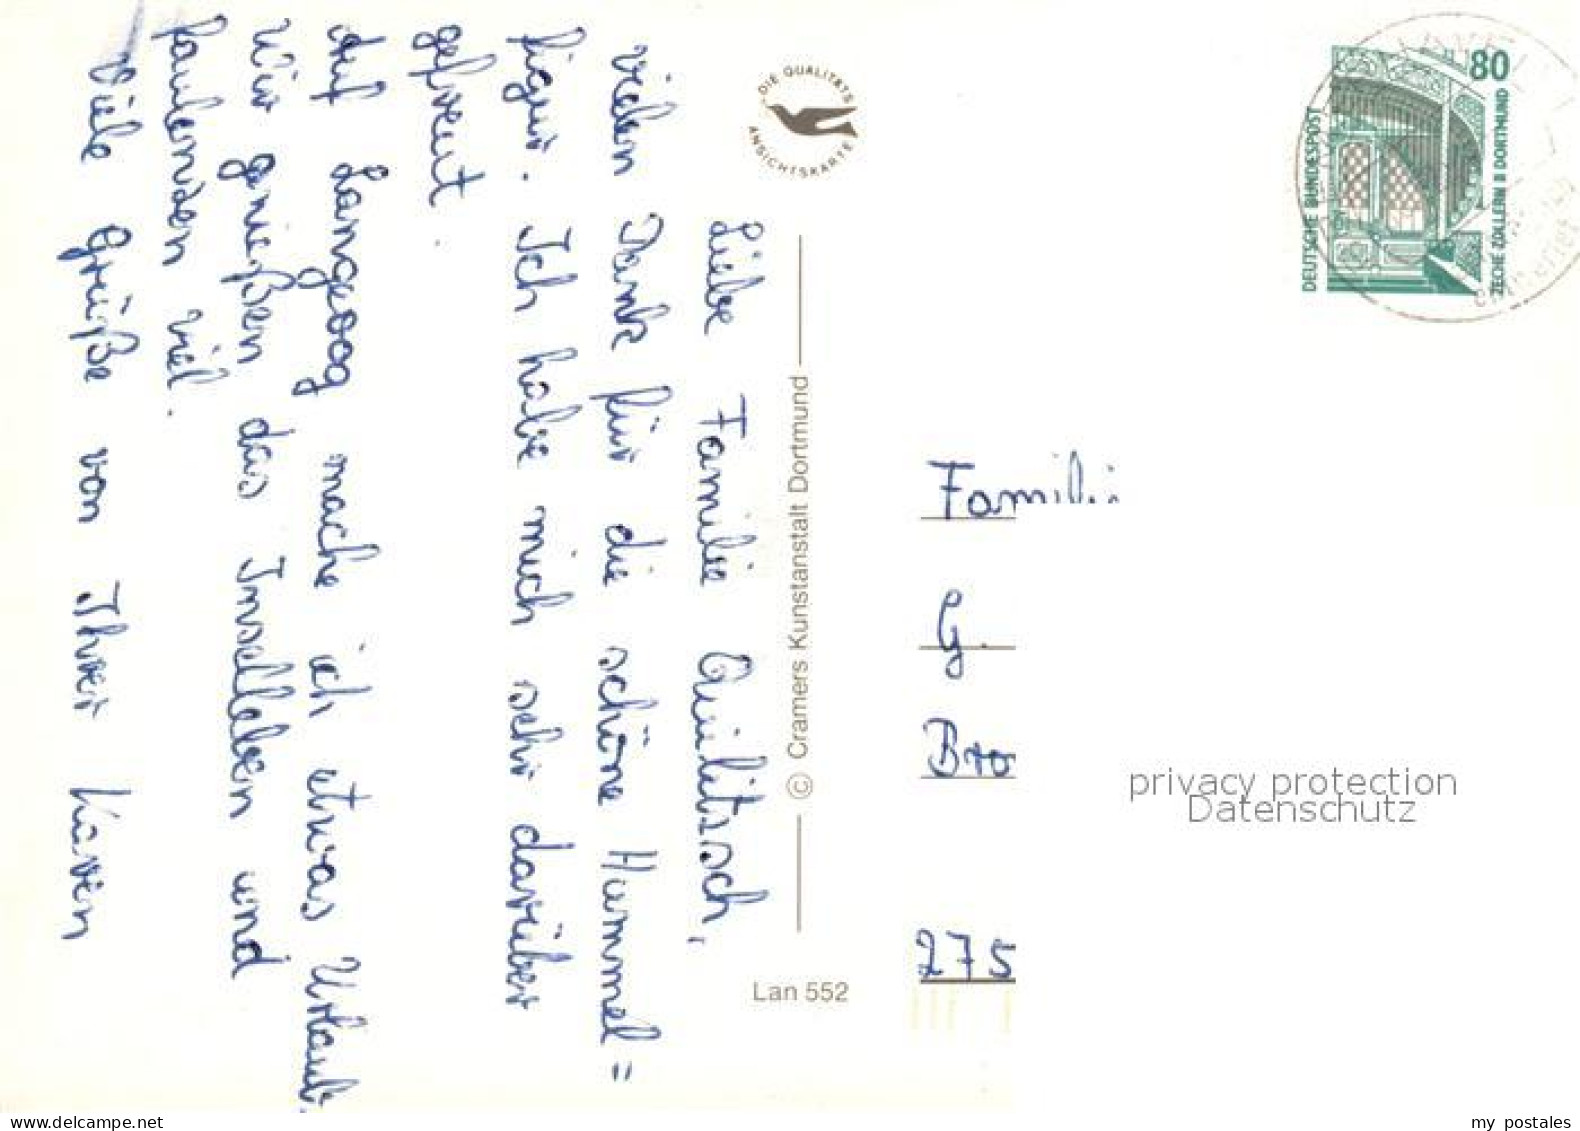 Liebe Familie Quilitzsch,
vielen Dank für die schöne Hummel=
figur. Ich habe mich sehr darüber
gefreut.
Auf Langeoog mache ich etwas Urlaub.
Wir genießen das Inselleben und
faulenzen viel.
Viele Grüße von Ihrer Karen
DIE QUALITÄTS
ANSICHTSKARTE
© Cramers Kunstanstalt Dortmund
Lan 552
80
DEUTSCHE BUNDESPOST
ZECHE ZOLLERN II DORTMUND
Familie
G.
Bro
275
privacy protection
Datenschutz
www.delcampe.net
my postales